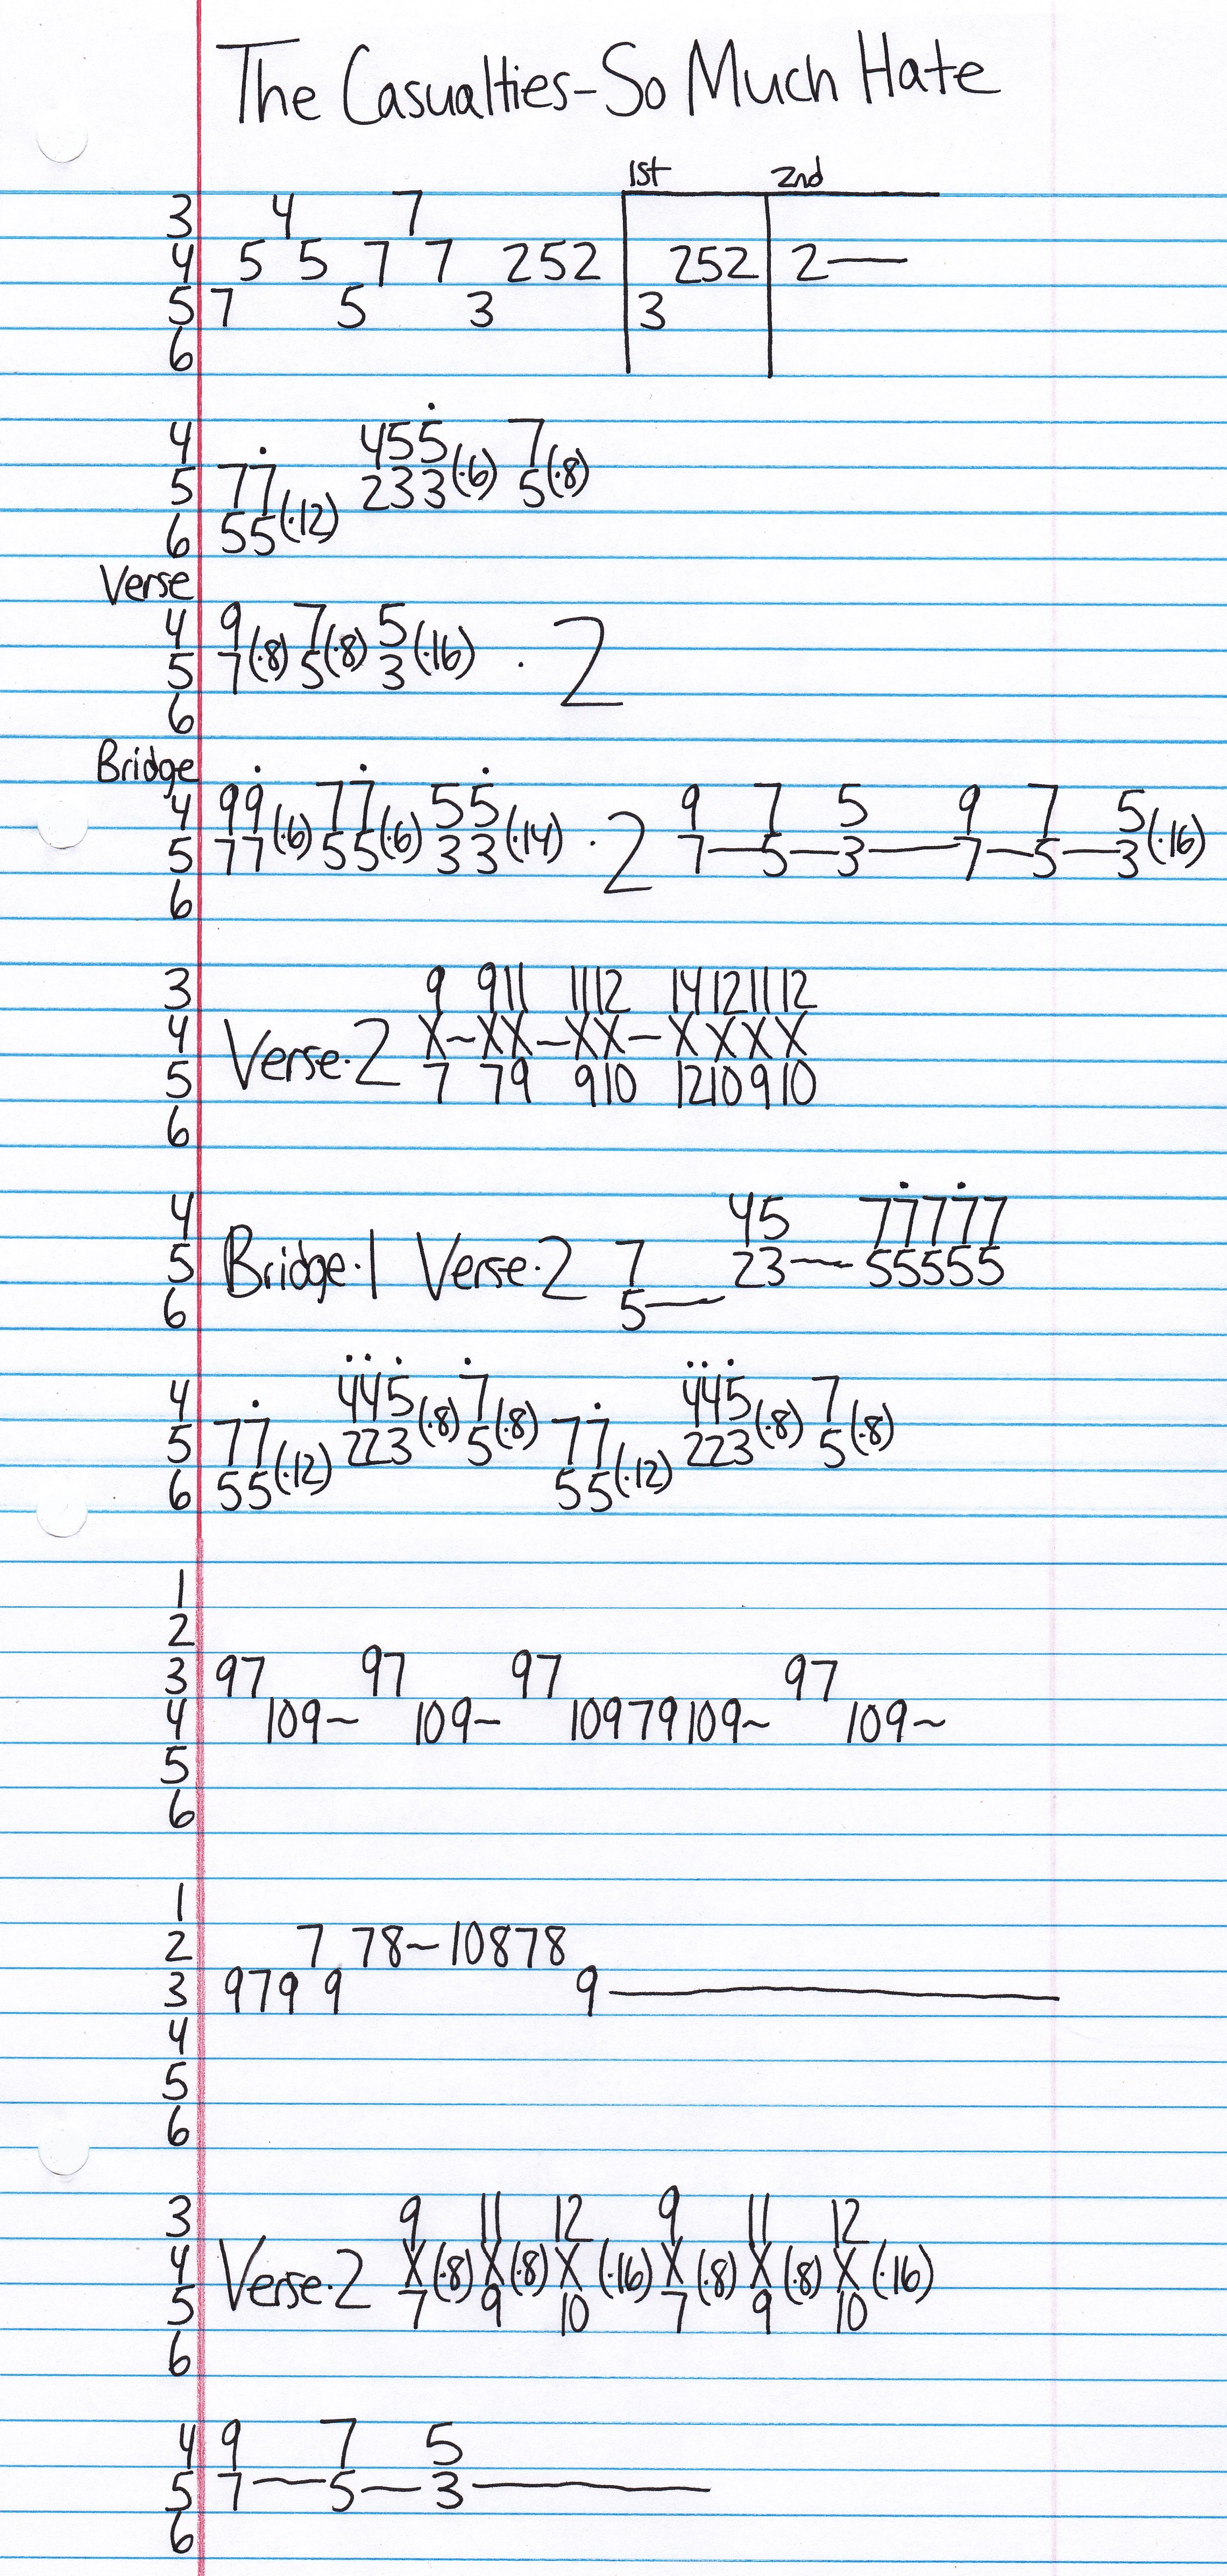 The Casualties-So Much Hate
1st 2nd
3 4 7
4 5 5 7 7 252 252 2—
5 7 5 3 3
6
4 455 7
5 77 233(·6) 5(·8)
6 55(·12)
Verse
4 9 7 5
5 7(·8) 5(·8) 3(·16) · 2
6
Bridge
4 99 77 55 9 7 5 9 7 5
5 77(·6) 55(·6) 33(·14) · 2 7—5—3—7—5—3(·16)
6
3 9 911 1112 14121112
4 Verse·2 X~XX~XX~XXXX
5 7 79 910 1210910
6
4 45 77777
5 Bridge·1 Verse·2 7 23— 55555
6 5—
4 445 7 445 7
5 77 223(·8) 5(·8) 77 223(·8) 5(·8)
6 55(·12) 55(·12)
1
2
3 97 97 97 97
4 109~ 109~ 10979109~ 109~
5
6
1
2 7 78~10878
3 979 9 9—
4
5
6
3 9 11 12 9 11 12
4 Verse·2 X(·8) X(·8) X(·16) X(·8) X(·8) X(·16)
5 7 9 10 7 9 10
6
4 9 7 5
5 7—5—3—
6